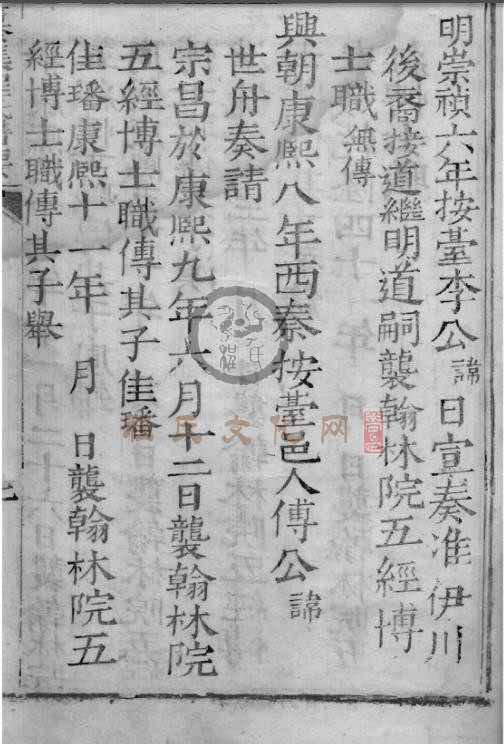 明崇禎六年按臺李公諱日宣奏准伊川
後裔接道繼明道嗣襲翰林院五經博
士職無傳
興朝康熙八年西秦按臺邑人傅公諱
世舟奏請
宗昌於康熙九年六月十二日襲翰林院
五經博士職傳其子佳璠
佳璠康熙十一年 月 日襲翰林院五
經博士職傳其子舉
程氏文化网